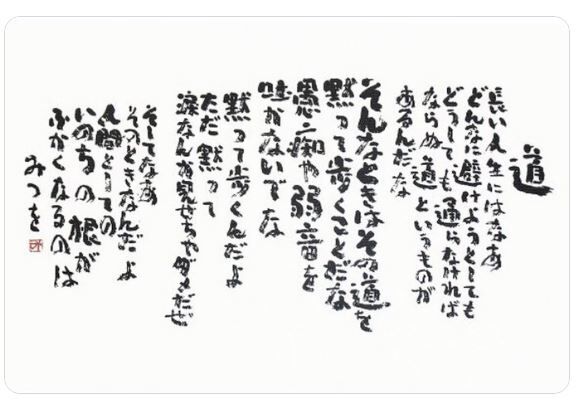 道
長い人生にはなあ
どんなに避けようとしても
どうしても通らなければ
ならぬ道というものが
あるんだな
そんなときはその道を
黙って歩くことだな
愚痴や弱音を
吐かないでな
黙って歩くんだよ
ただ黙って
涙なんか見せちゃダメだぜ
そしてなあ
そのときなんだよ
人間としての
いのちの根が
ふかくなるのは
みつを